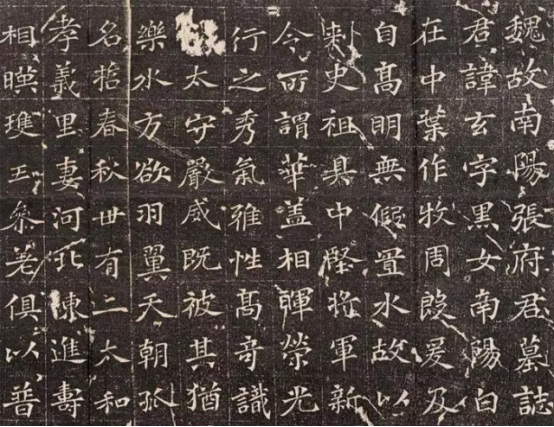 魏故南陽張府君墓誌
君諱玄字黑女南陽白
在中葉作牧周殷爰及
自高明無假置水故以
刺史祖具中堅將軍新
今所謂華蓋相暉榮光
行之秀氣雅性高奇識
太守嚴威既被其猶
樂水方欲羽翼天朝抓
名哲春秋卅有二太和
孝義里妻河北陳進壽
相暎瓊玉參差俱以普